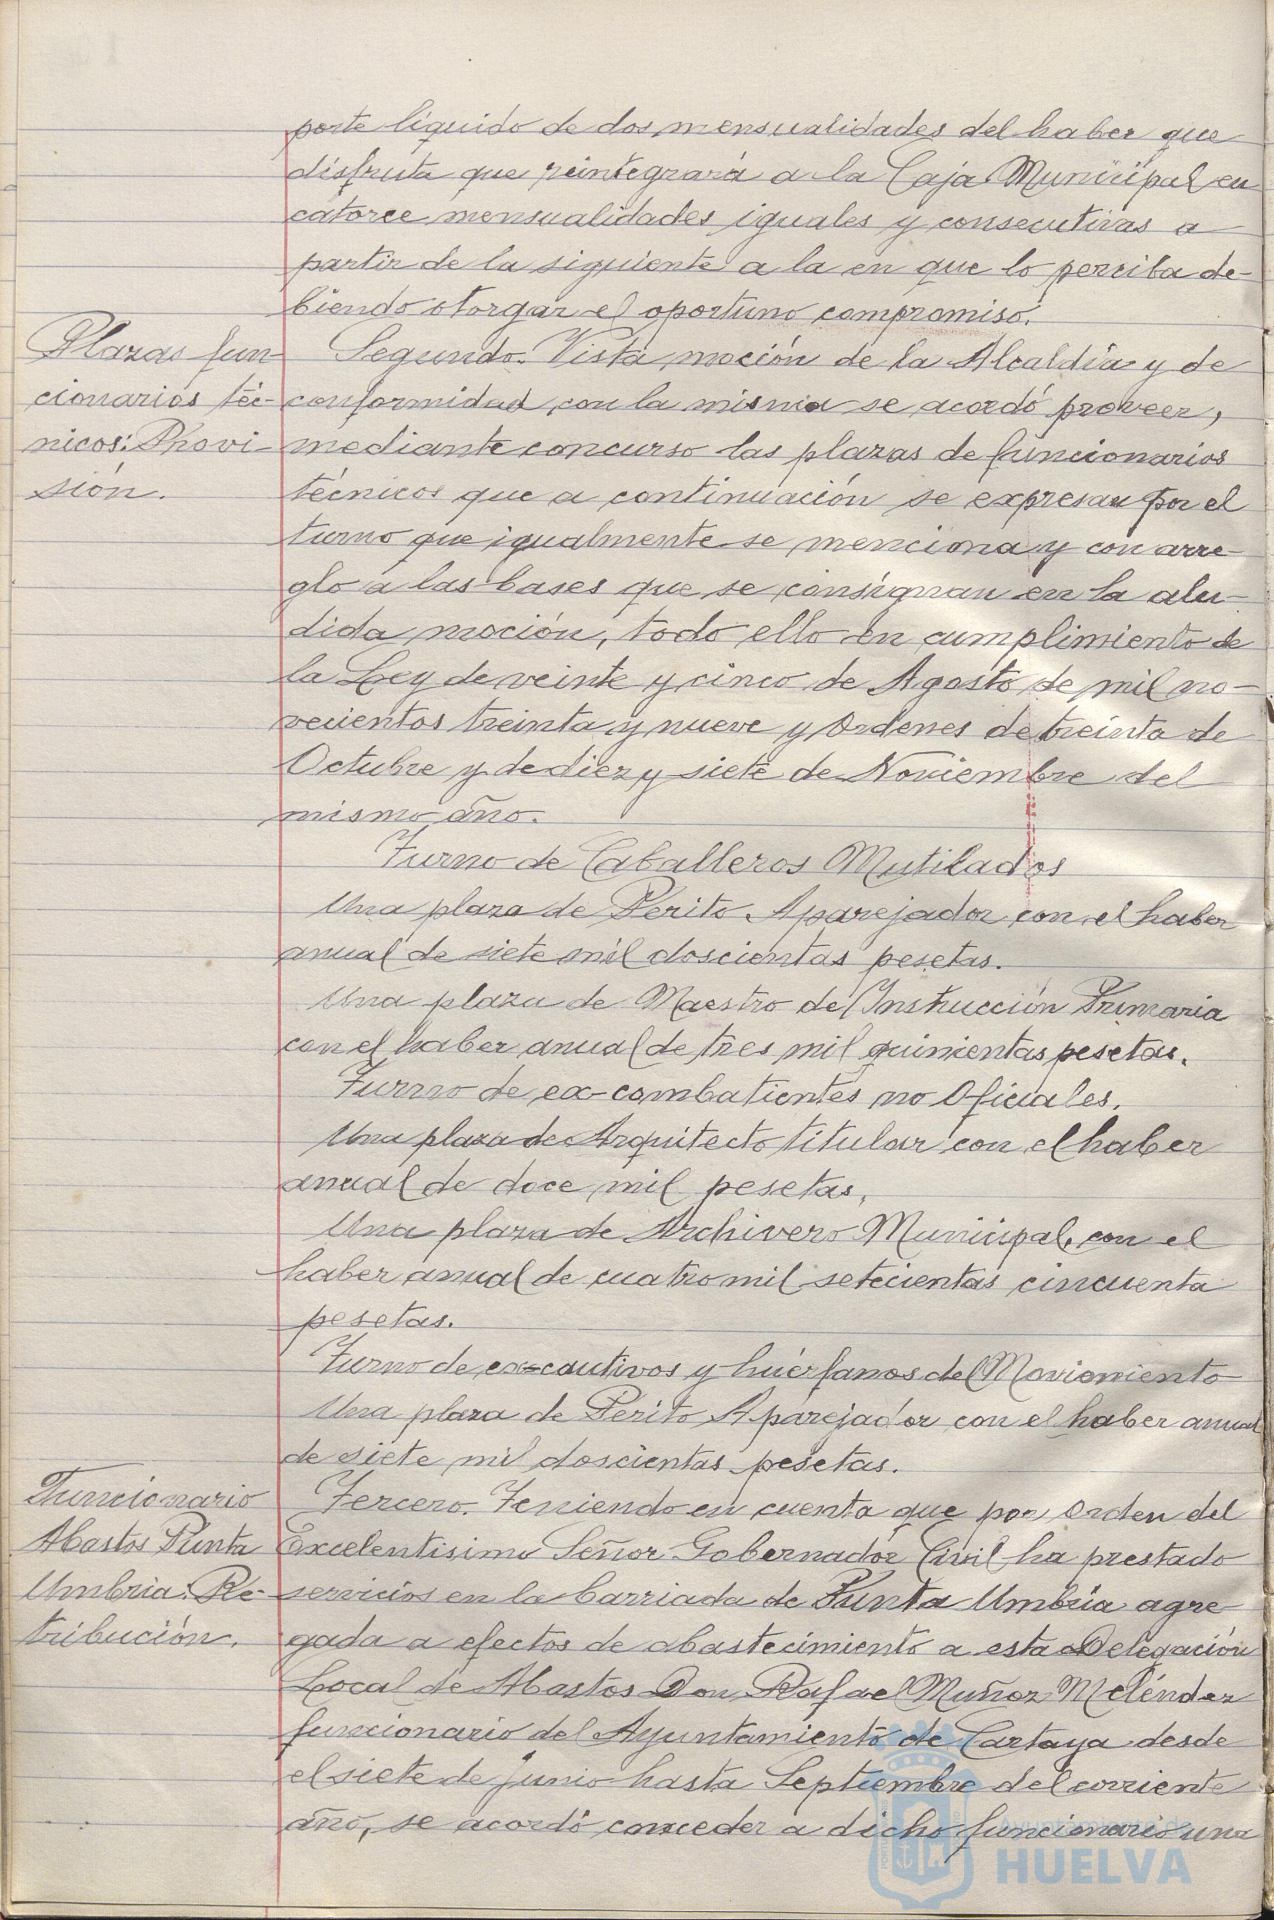 porte líquido de dos mensualidades del haber que
disfruta que reintegrará a la Caja Municipal en
catorce mensualidades iguales y consecutivas a
partir de la siguiente a la en que lo perciba de-
biendo otorgar el oportuno compromiso.
Plazas fun
cionarios téc-
nicos: Provi-
sión.
Segundo. Vista moción de la Alcaldía y de
conformidad con la misma se acordó proveer,
mediante concurso las plazas de funcionarios
técnicos que a continuación se expresan por el
turno que igualmente se menciona y con arre-
glo a las bases que se consignan en la alu-
dida moción, todo ello en cumplimiento de
la Ley de veinte y cinco de Agosto de mil no-
vecientos treinta y nueve y Ordenes de treinta de
Octubre y de diez y siete de Noviembre del
mismo año.
Turno de Caballeros Mutilados
Una plaza de Perito Aparejador con el haber
anual de siete mil doscientas pesetas.
Una plaza de Maestro de Instrucción Primaria
con el haber anual de tres mil quinientas pesetas.
Turno de ex-combatientes no Oficiales.
Una plaza de Arquitecto titular con el haber
anual de doce mil pesetas.
Una plaza de Archivero Municipal, con el
haber anual de cuatro mil setecientas cincuenta
pesetas.
Turno de ex-cautivos y huérfanos del Movimiento
Una plaza de Perito Aparejador con el haber anual
de siete mil doscientas pesetas.
Funcionario
Abastos Punta
Umbria: Re-
tribución.
Tercero. Teniendo en cuenta que por orden del
Excelentisimo Señor Gobernador Civil ha prestado
servicios en la barriada de Punta Umbría agre-
gada a efectos de abastecimiento a esta Delegación
Local de Abastos Don Rafael Muñoz Meléndez
funcionario del Ayuntamiento de Cartaya desde
el siete de junio hasta Septiembre del corriente
año, se acordó conceder a dicho funcionario una
Ayuntamiento de
HUELVA